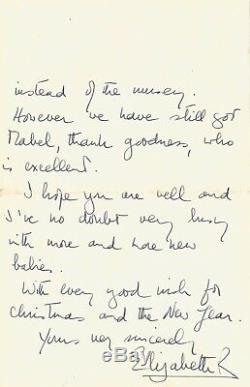 instead of the nursery.
However we have still got
Mabel, thank goodness, who
is excellent.
I hope you are well and
I've no doubt very busy
with more and more new
babies.
With every good wish for
Christmas and the New Year.
Yours very sincerely
Elizabeth R